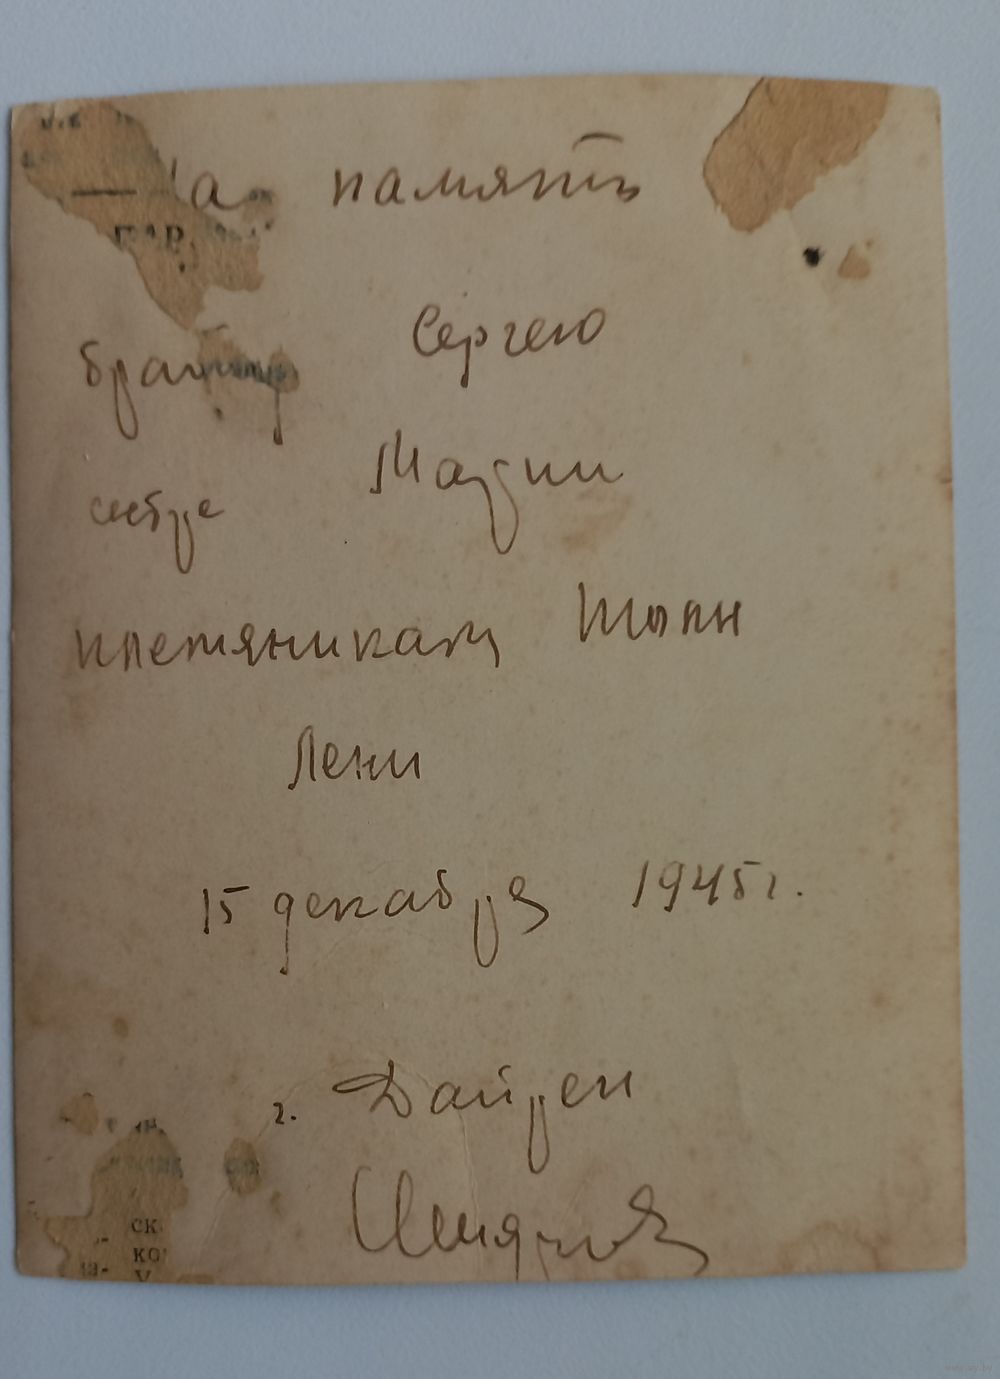 На память
брату Сергею
сестре Марии
племяникам
Лени
15 декабря 1945 г.
г. Дайрен
СК
КО